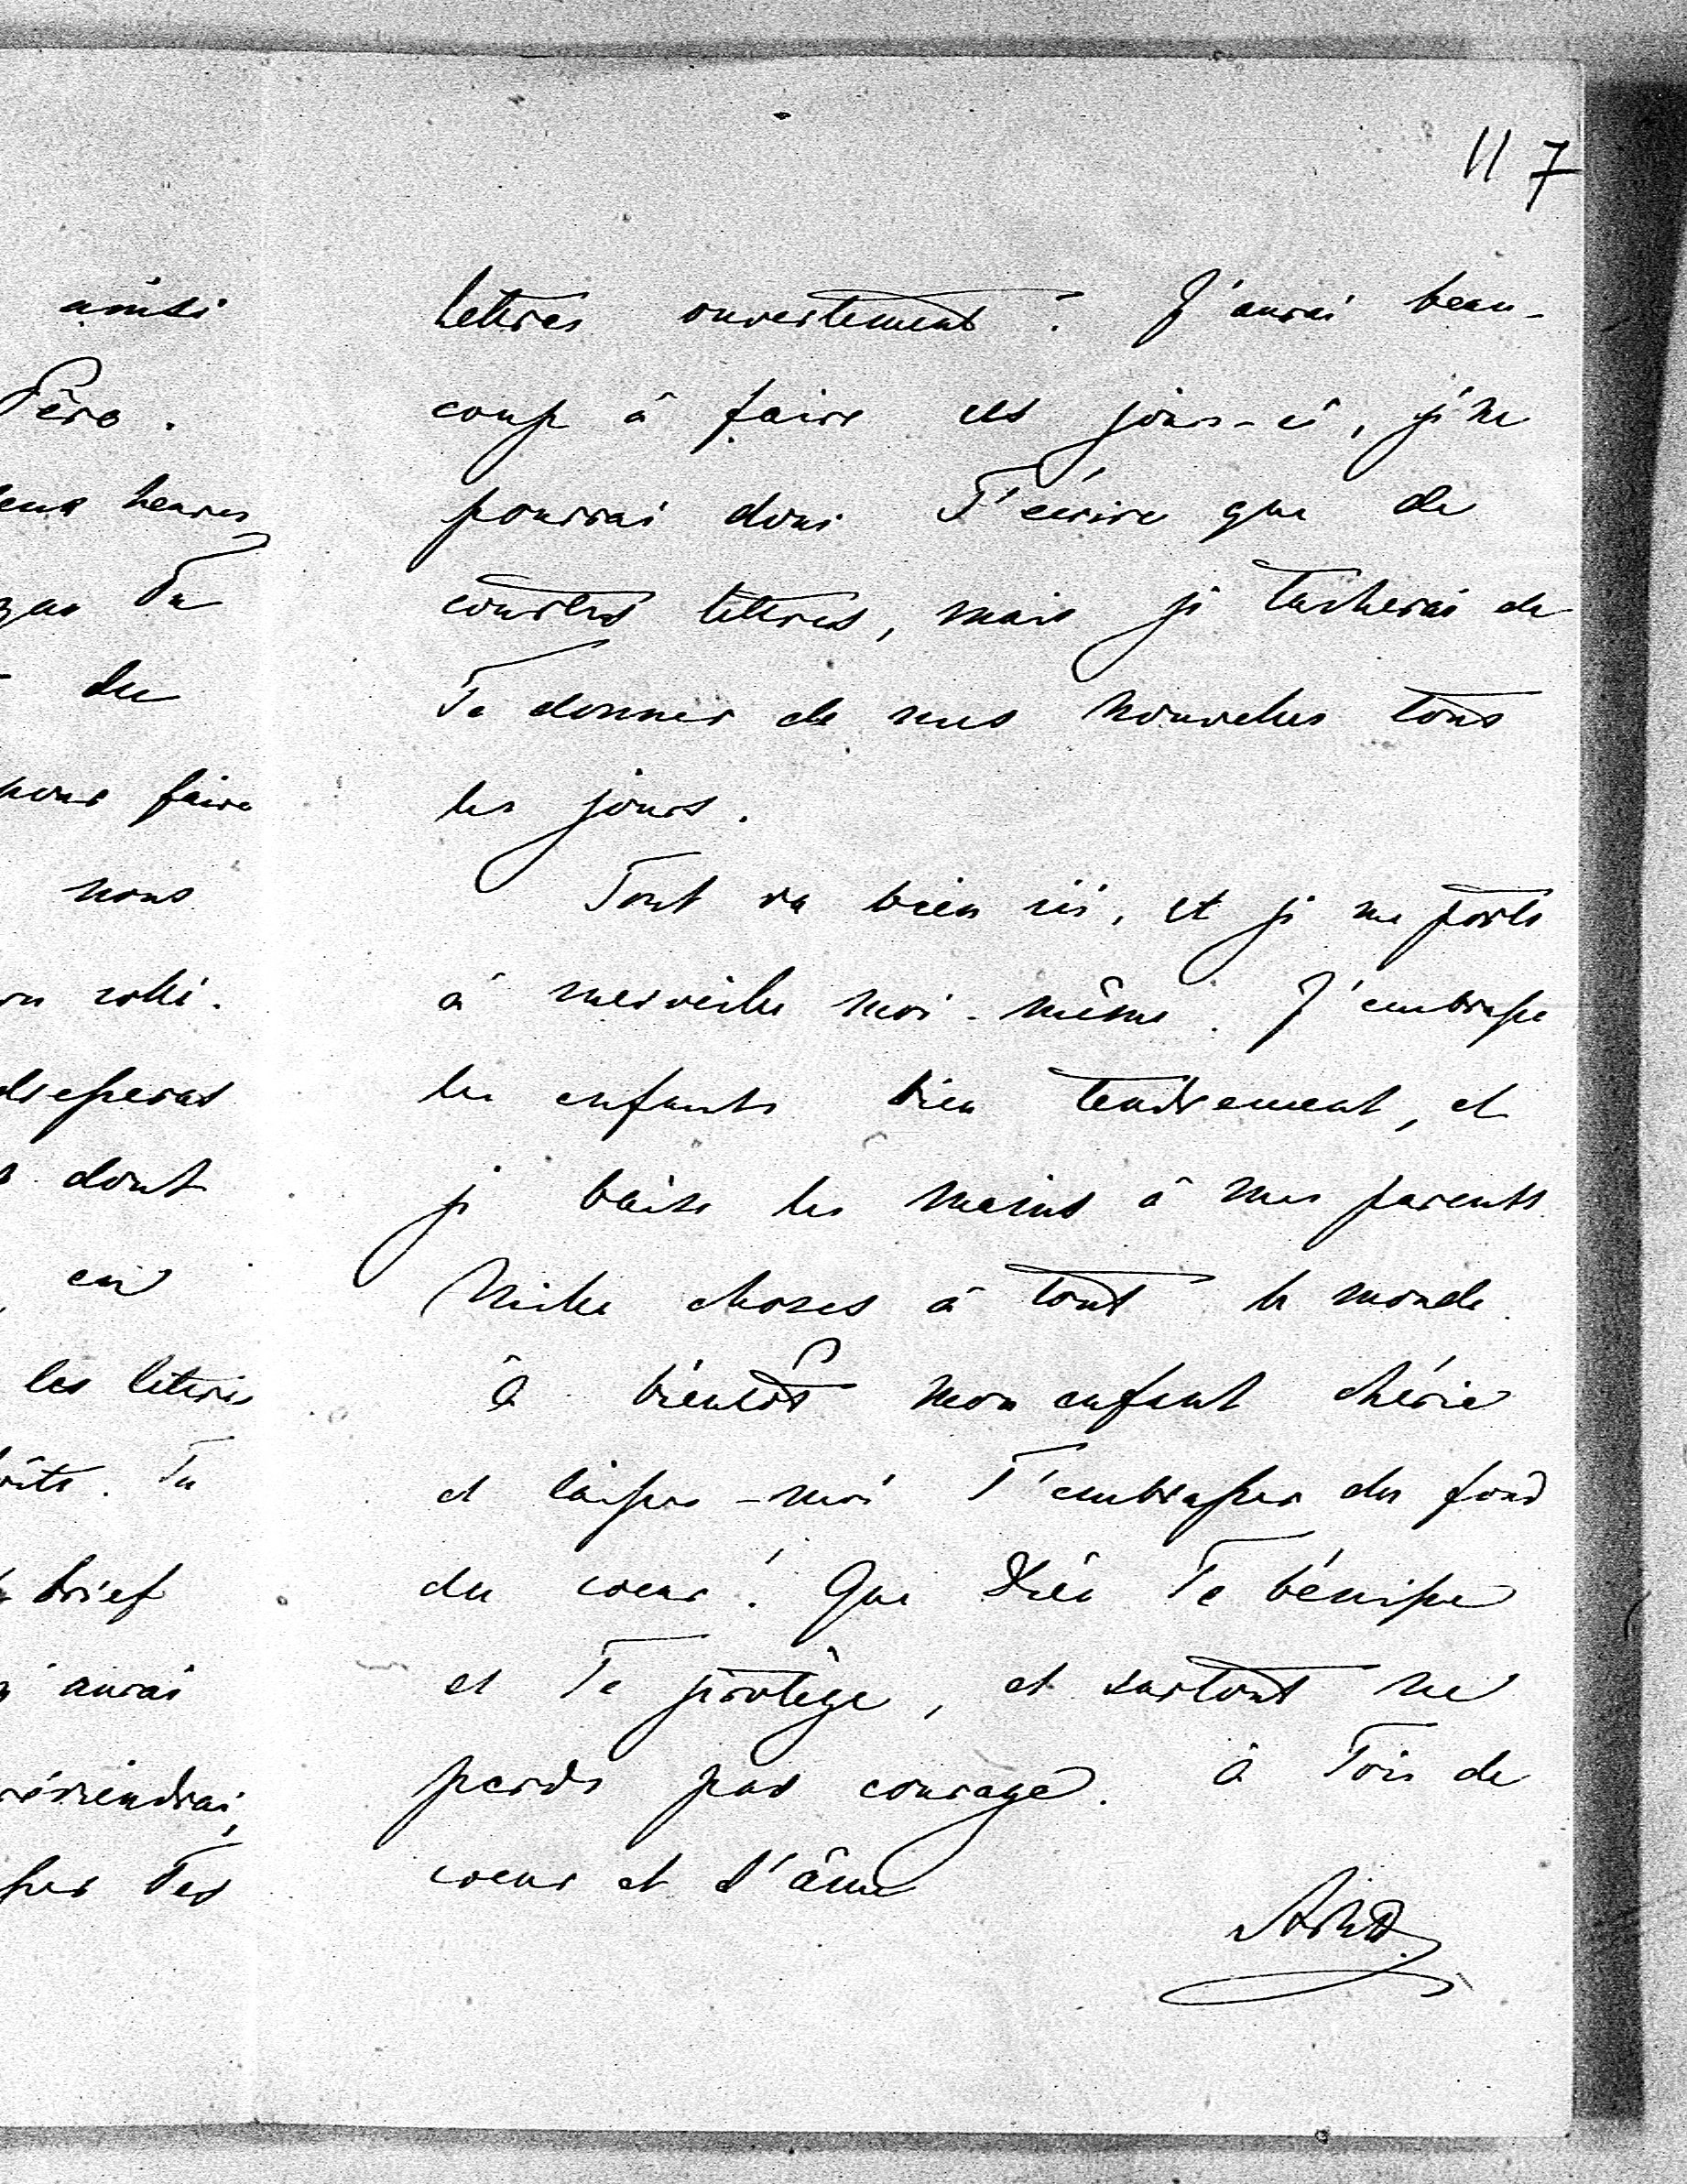 117
ainsi
Père.
heures
que Tu
du
pour faire
nous
dont
les lettres
Tu
brief
aurai
reviendrai,
Tes
lettres ouvertement. J'aurai beau-
coup à faire ces jours-ci, je ne
pourrai donc T'écrire que de
courtes lettres, mais je tacherai de
Te donner de mes nouvelles tous
les jours.
Tout va bien ici, et je me porte
à merveille moi-même. J'embrasse
les enfants bien tendrement, et
je baise les mains à mes parents.
Mille choses à tout le monde.
à bientôt mon enfant chérie
et laisse-moi T'embrasser du fond
du coeur! Que Dieu Te bénisse
et Te protège, et surtout ne
perds pas courage. à Toi de
coeur et d'âme